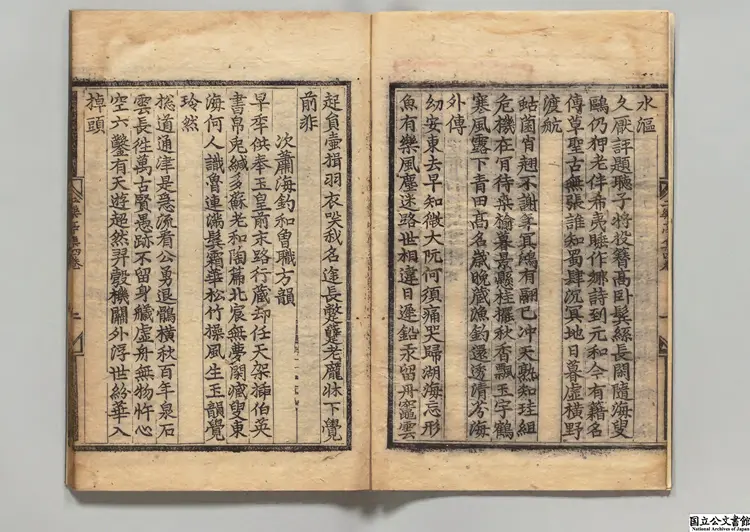 水漚
久厭評題聰子將投簪高卧鬂絲長閑隨海叟
鷗仍狎老伴希夷睡作鄉詩到元和今有籍名
傳草聖古無張誰知蜀肆沉冥地日暮虛橫野
渡航
蛄菌肯翹不謝年冥鴻有翮已冲天熟知珪組
危機在肎待桒榆暮景懸桂擢秋香飄玉宇鶴
寒風露下青田高名歲晚蔵漁釣還透清芬海
外傳
幼安東去早知微大阮何須痛哭歸湖海忘形
魚有樂風塵迷路世相違日逢鉛汞留丹竈雲
起負壷揖羽衣咲我名途長蹩躄老龎牀下覺
前非
次蕭海釣和曾職方韻
早年供奉玉皇前末路行蔵却任天架揷伯英
書帛免緘多蘇老和陶篇北宸無夢関蔵叟東
海何人識魯連滿鬂霜華松竹操風生玉韻覺
玲然
揔道通津是惡流看公勇退鶻橫秋百年泉石
雲長徃萬古賢愚跡不留身藏虛舟無物忤心
空六鑿有天遊超然羿彀機關外浮世紛華入
掉頭
国立公文書館
National Archives of Japan